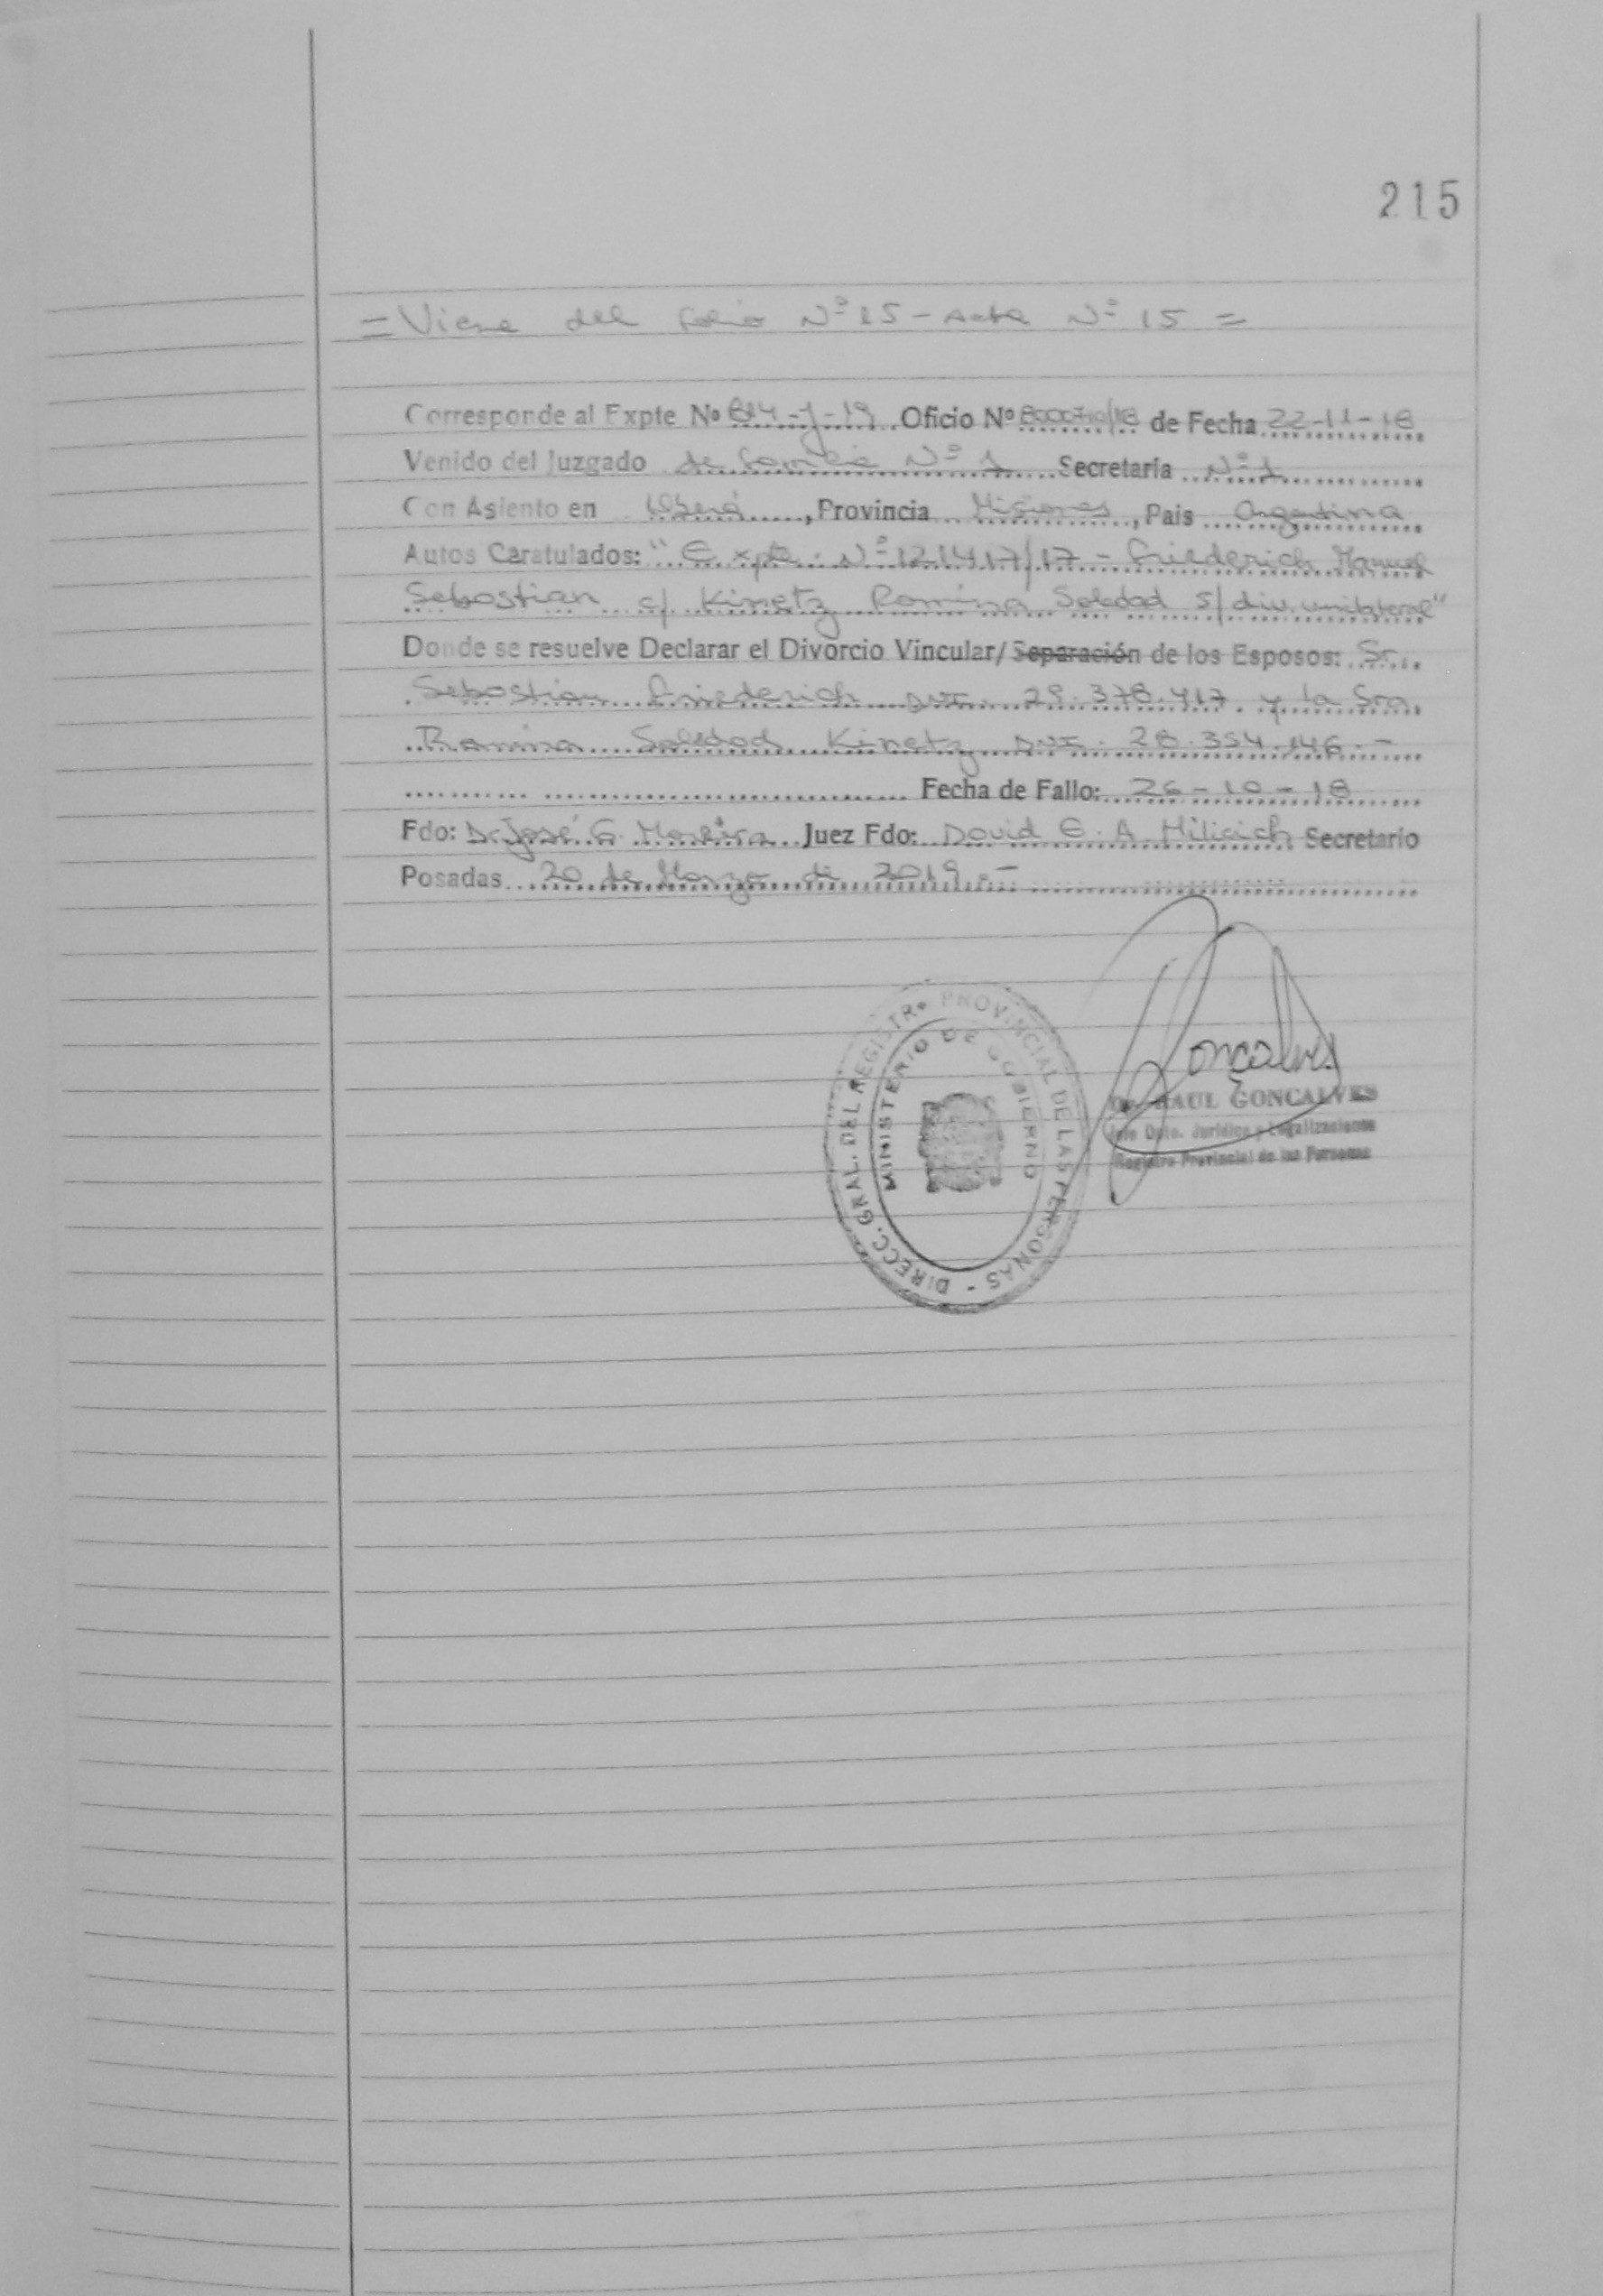 215
= Viene del folio Nº 15 - Acta Nº 15 =
Corresponde al Expte Nº 814-J-19 Oficio Nº 8000710/18 de Fecha 22-11-18
Venido del Juzgado de familia Nº 1 Secretaría Nº 1
Con Asiento en Oberá, Provincia Misiones, Pais Argentina
Autos Caratulados: "Expte. Nº 121417/17 - Friederich Manuel
Sebastian c/ Kinetz Romina Soledad s/ div. unilateral"
Donde se resuelve Declarar el Divorcio Vincular/Separación de los Esposos: Sr.
Sebastian Friederich DNI. 29.378.417. y la Sra.
Romina Soledad Kinetz DNI. 28.354.146.-
Fecha de Fallo: 26-10-18
Fdo: Dr. José G. Moreira Juez Fdo: David E. A Milicich Secretario
Posadas 20 de Marzo de 2019.-
DIRECC. GRAL. DEL REGISTRO PROVINCIAL DE LAS PERSONAS -
MINISTERIO DE GOBIERNO
Goncalves
RAUL GONCALVES
Jefe Dpto. Jurídico y Legalizaciones
Registro Provincial de las Personas